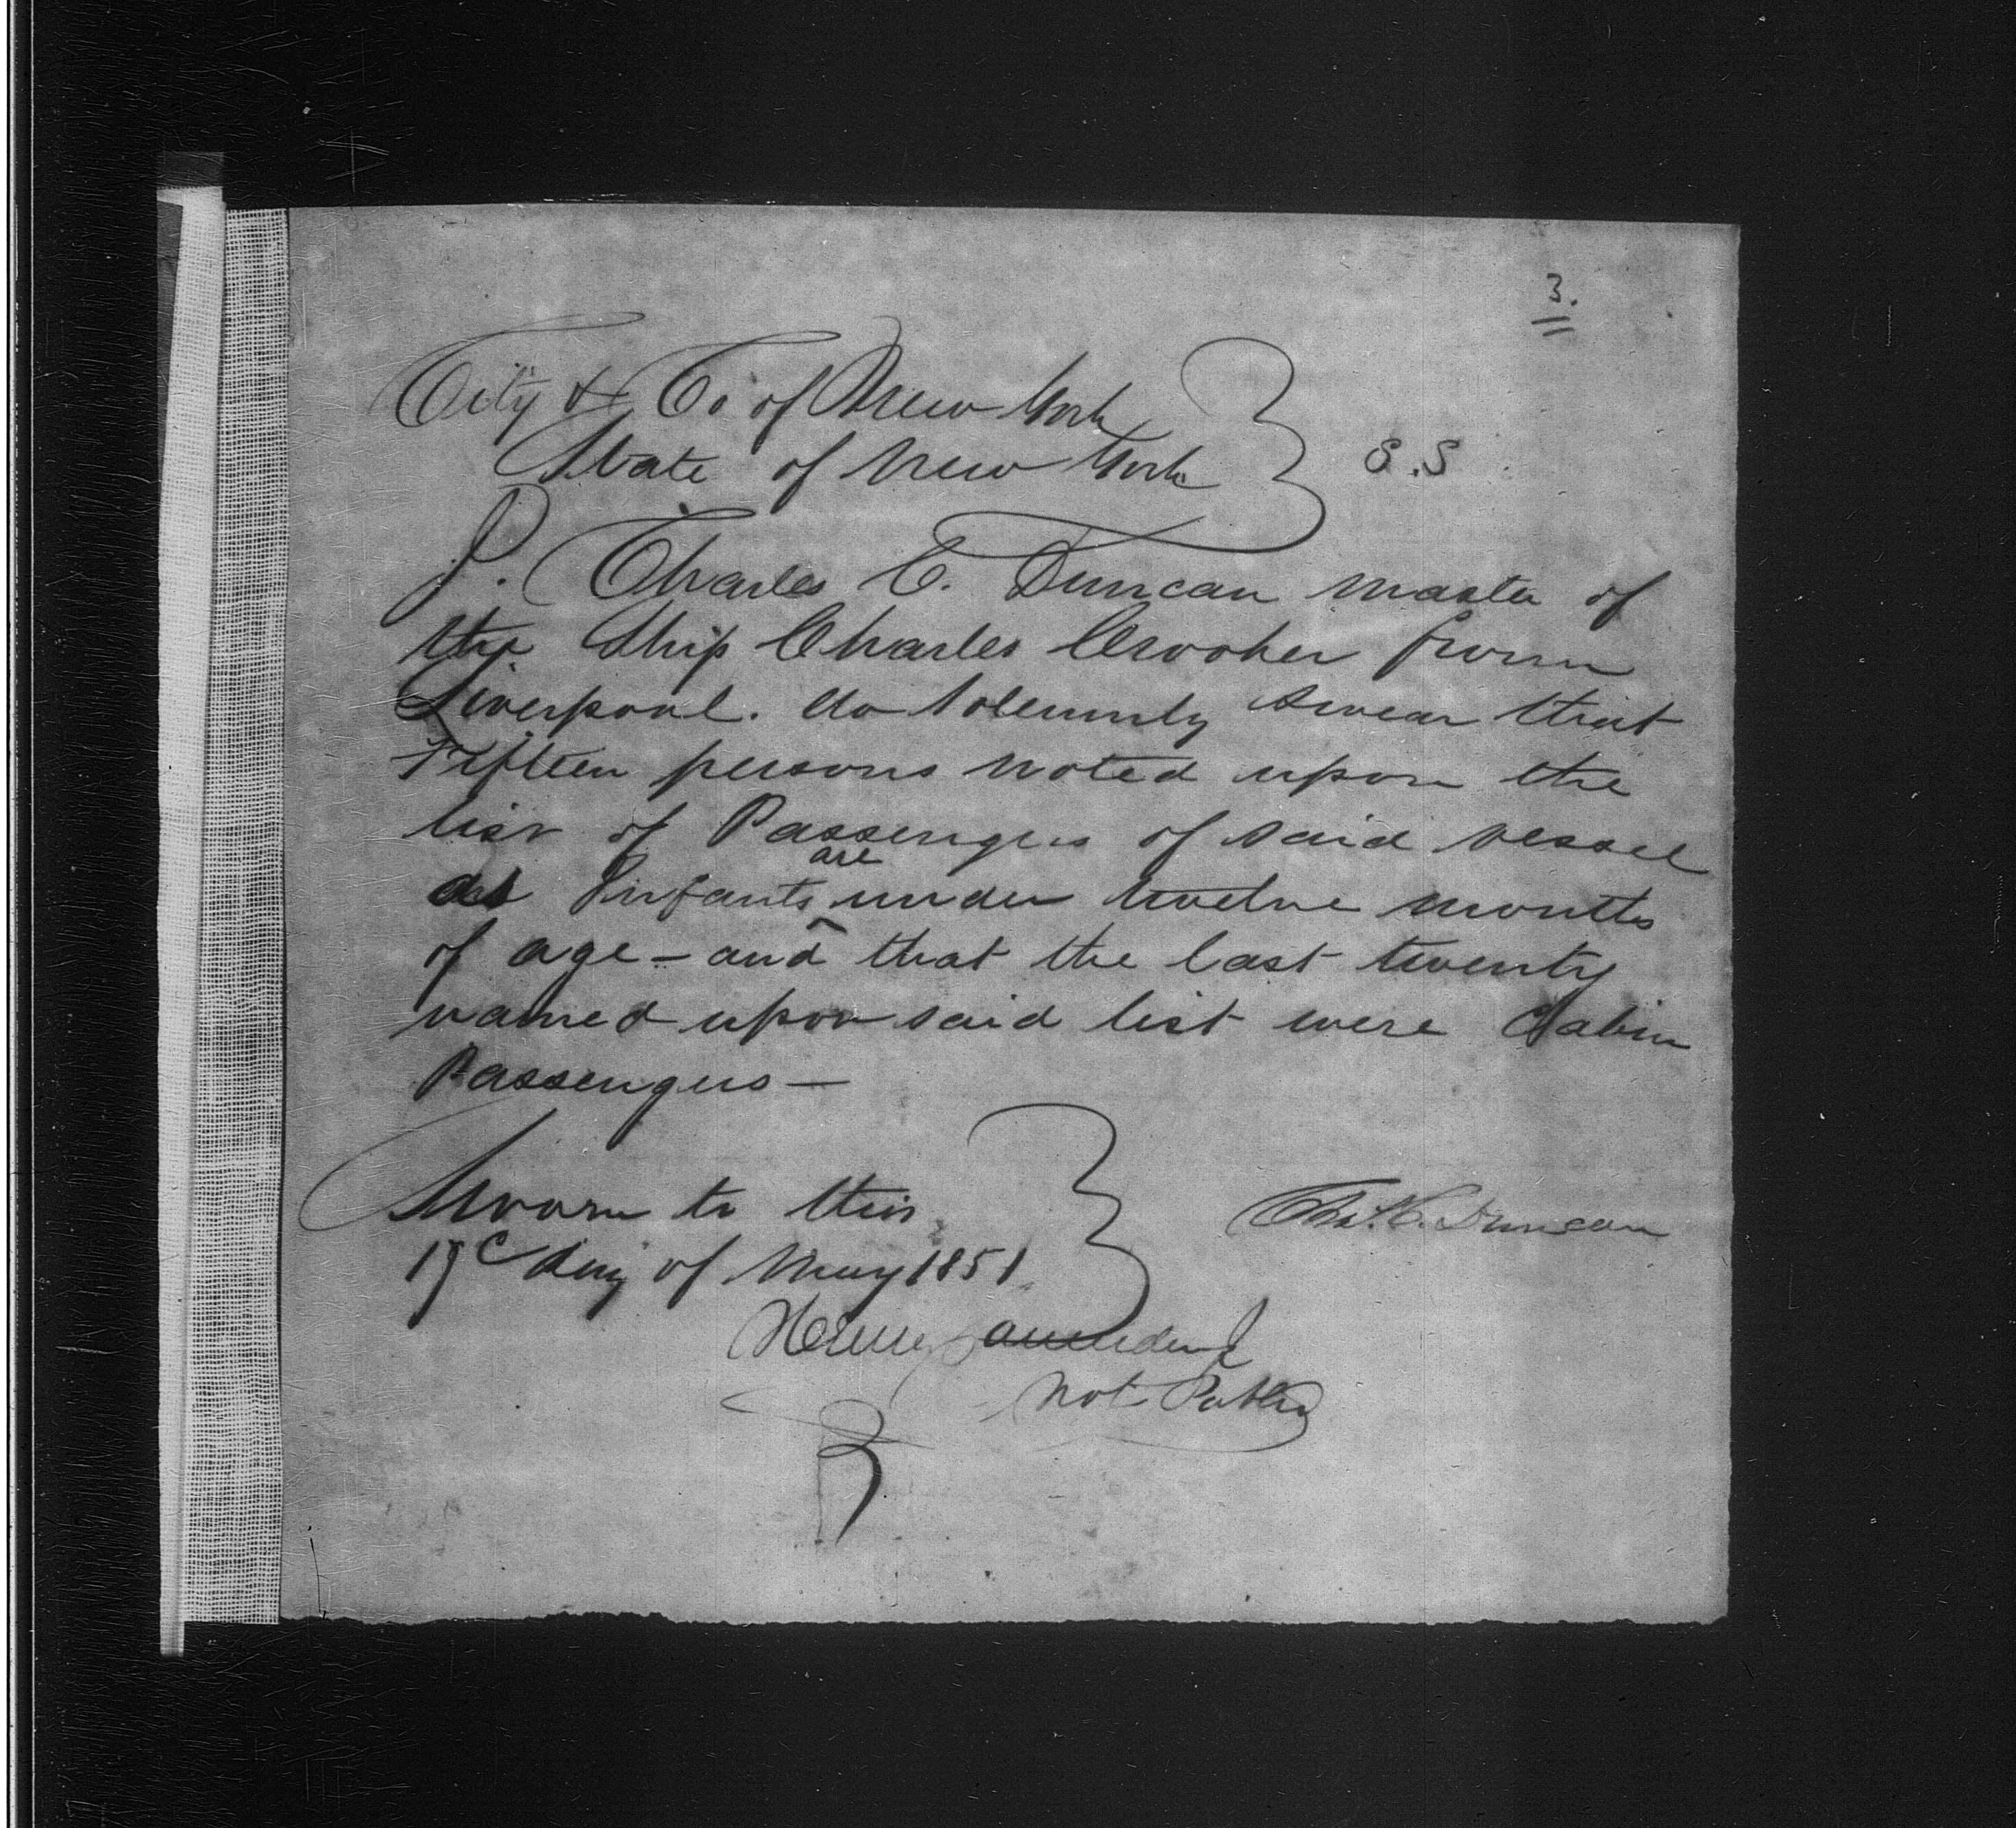 3.
City & Co of New York
State of New York } S.S
I. Charles C. Duncan master of
the Ship Charles Crooker from
Liverpool. do Solemnly swear that
Fifteen persons noted upon the
list of Passengers of said vessel
as Infants are under twelve months
of age - and that the last twenty
named upon said list were Cabin
Passengers -
Sworn to this
day of May 1851
Chas. C. Duncan
Henry
Not Public